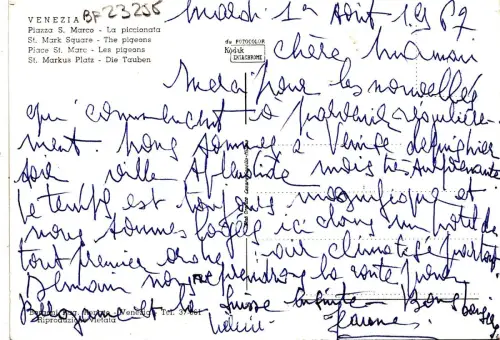 VENEZIA
BF23255
Piazza S. Marco - La piccionata
St. Mark Square - The pigeons
Place St. Marc - Les pigeons
St. Markus Platz - Die Tauben
da FOTOCOLOR
Kodak
EKTACHROME
Mardi 1er Août 1967
Chère Maman
Merci pour les nouvelles
qui commencent à parvenir régulière-
ment nous sommes à Venise depuis hier
soir ville splendide mais très
le temps est toujours magnifique et
nous sommes logés ici dans un hôtel de
tout premier ordre air climatisé partout
Demain nous reprendrons la route pour
et la Suisse ensuite Bons baisers
Riproduzione Vietata